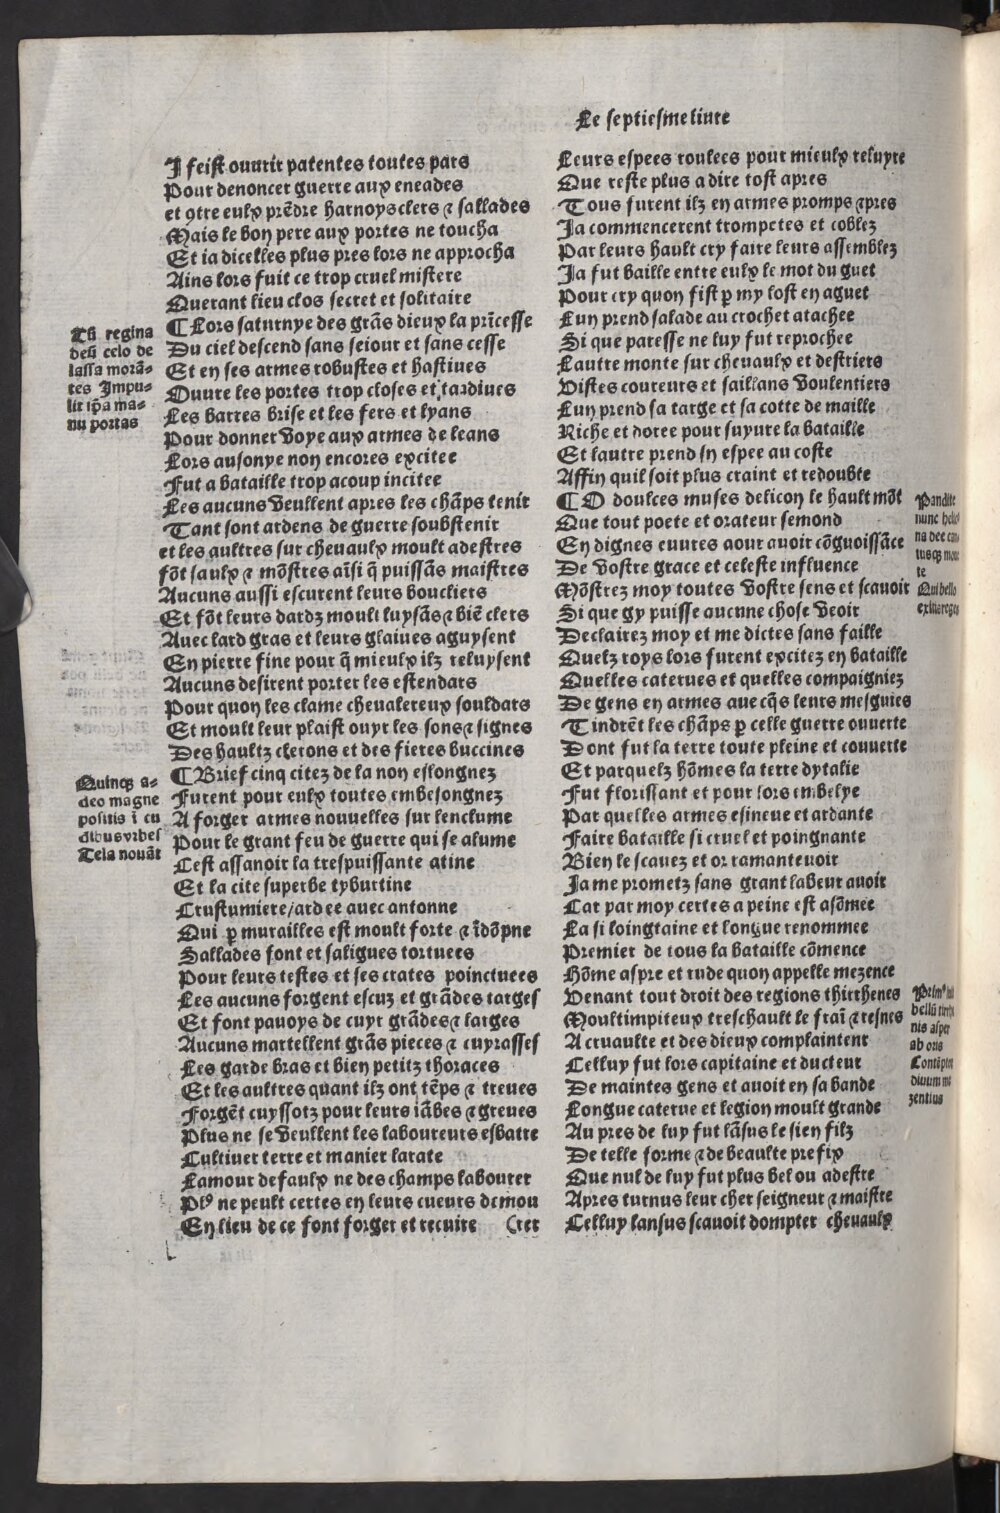 Le septiesme livre
I feist ouurir patentes toutes pars
Pour denoncer guerre aux eneades
et ꝯtre eulx prẽdre harnoys clers ⁊ sallades
Mais le bon pere aux portes ne toucha
Et ia dicelles plus pres lors ne approcha
Ains lors fuit ce trop cruel mistere
Querant lieu clos secret et solitaire
¶ Lors saturnye des grãs dieux la prĩcesse
Du ciel descend sans seiour et sans cesse
Et en ses armes robustes et hastiues
Ouure les portes trop closes et tardiues
Les barres brise et les fers et lyans
Pour donner voye aux armes de leans
Lors ausonye non encores excitee
Fut a bataille trop acoup incitee
Les aucuns veullent apres les chãps tenir
Tant sont ardens de guerre soubstenir
et les aultres sur cheuaulx moult adestres
fõt saulx ⁊ mõstres aĩsi q̃ puissãs maistres
Aucuns aussi escurent leurs boucliers
Et fõt leurs dardz moult luysãs ⁊ biẽ clers
Auec lard gras et leurs glaiues aguysent
En pierre fine pour q̃ mieulx ilz reluysent
Aucuns desirent porter les estendars
Pour quon les clame cheualereux souldars
Et moult leur plaist ouyr les sons ⁊ signes
Des haultz clerons et des fieres buccines
¶ Brief cinq citez de la non eslongnez
Furent pour eulx toutes embesongnez
A forger armes nouuelles sur lenclume
Pour le grant feu de guerre qui se alume
Cest assauoir la trespuissante atine
Et la cite superbe tyburtine
Crustumiere/ardee auec antonne
Qui ꝑ murailles est moult forte ⁊ ĩdõpne
Sallades font et saligues tortuees
Pour leurs testes et ses crates poinctuees
Les aucuns forgent escuz et grãdes targes
Et font pauoys de cuyr grãdes ⁊ larges
Aucuns martellent grãs pieces ⁊ cuyrasses
Les garde bras et bien petitz thoraces
Et les aultres quant ilz ont tẽps ⁊ treues
Forgẽt cuyssotz pour leurs iãbes ⁊ greues
Plus ne se veullent les laboureurs esbatre
Cultiuer terre et manier larate
Lamour de faulx ne des champs labourer
Plꝰ ne peult certes en leurs cueurs demou
En lieu de ce font forger et recuire (rer
Tũ regina
deũ celo de
lassa morã-
tes Impu-
lit ip̃a ma-
nu portas
Quinqꝫ a-
deo magne
positis ĩ cu
dibus vrbes
Tela nouãt
Leurs espees roulees pour mieulx reluyre
Que reste plus a dire tost apres
Tous furent ilz en armes promps ⁊ pres
Ja commencerent trompetes et coblez
Par leurs hault cry faire leurs assemblez
Ja fut baille entre eulx le mot du guet
Pour cry quon fist ꝑ my lost en aguet
Lun prend salade au crochet atachee
Si que paresse ne luy fut reprochee
Lautre monte sur cheuaulx et destriers
Vistes coureurs et saillans voulentiers
Lun prend sa targe et sa cotte de maille
Riche et doree pour suyure la bataille
Et lautre prend sn espee au coste
Affin quil soit plus craint et redoubte
¶ O doulces muses delicon le hault mõt
Que tout poete et orateur semond
En dignes euures aour auoir cõgnoissãce
De vostre grace et celeste influence
Mõstrez moy toutes vostre sens et scauoir
Si que gy puisse aucune chose veoir
Declairez moy et me dictes sans faille
Quelz roys lors furent excitez en bataille
Quelles caterues et quelles compaigniez
De gens en armes auecq̃s leurs mesgnies
Tindrẽt les chãps ꝑ celle guerre ouuerte
Dont fut la terre toute pleine et couuerte
Et par quelz hõmes la terre dytalie
Fut florissant et pour lors embelye
Par quelles armes esineue et ardante
Faire bataille si cruel et poingnante
Bien le scauez et or ramanteuoir
Ja me prometz sans grant labeur auoir
Car par moy certes a peine est asõmee
La si loingtaine et longue renommee
Premier de tous la bataille cõmence
Hõme aspre et rude quon appelle mezence
Venant tout droit des regions thirrhenes
Moult impiteux treschault le fraĩ ⁊ resnes
A cruaulte et des dieux complaintent
Celluy fut lors capitaine et ducteur
De maintes gens et auoit en sa bande
Longue caterue et legion moult grande
Au pres de luy fut lãsus le sien filz
De telle forme ⁊ de beaulte prefix
Que nul de luy fut plus bel ou adestre
Apres turnus leur cher seigneur ⁊ maistre
Celluy lansus scauoit dompter cheuaulx
Pandite
nunc
na dee
te
Qui bello
ab oris
diuum
zentius